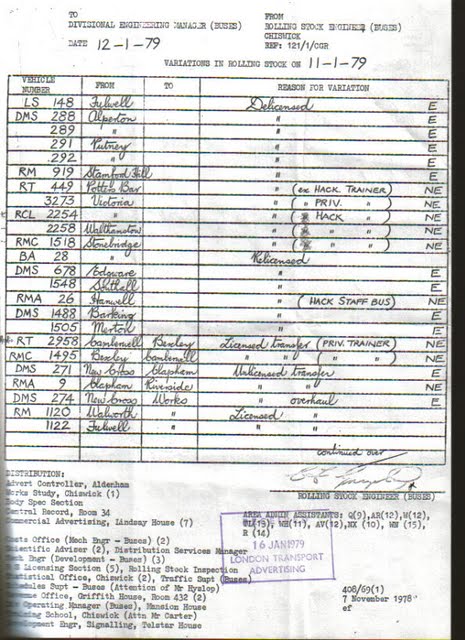 TO
DIVISIONAL ENGINEERING MANAGER (BUSES)
DATE 12-1-79
FROM
ROLLING STOCK ENGINEER (BUSES)
CHISWICK
REF: 121/1/CGR
VARIATIONS IN ROLLING STOCK ON 11-1-79
VEHICLE NUMBER FROM TO REASON FOR VARIATION
LS 148 Fulwell Delicensed E
DMS 288 Alperton " E
289 " " E
291 Putney " E
292 " " E
RM 919 Stamford Hill " E
RT 449 Potters Bar " (ex HACK TRAINER) NE
3273 Victoria " ( " PRIV. " ) NE
RCL 2254 " " ( HACK " ) NE
2258 Walthamstow " ( " " ) NE
RMC 1518 Stonebridge " ( " " ) NE
BA 28 " Relicensed NE
DMS 678 Edgware " E
1548 Southall " E
RMA 26 Hanwell " (HACK STAFF BUS) NE
DMS 1488 Barking " E
1505 Merton " E
RT 2958 Camberwell Bexley Licensed transfer (PRIV. TRAINER) NE
RMC 1495 Bexley Camberwell " " ( " " ) NE
DMS 271 New Cross Clapham Unlicensed transfer E
RMA 9 Clapham Riverside " " NE
DMS 274 New Cross Works " overhaul E
RM 1120 Walworth " Licensed "
1122 Fulwell " " "
continued over
ROLLING STOCK ENGINEER (BUSES)
DISTRIBUTION:
Advert Controller, Aldenham
Works Study, Chiswick (1)
Body Spec Section
Central Record, Room 34
Commercial Advertising, Lindsay House (7)
Costs Office (Mech Engr - Buses) (2)
Scientific Adviser (2), Distribution Services Manager
Mech Engr (Development - Buses) (3)
Licensing Section (5), Rolling Stock Inspection
Statistical Office, Chiswick (2), Traffic Supt (Buses)
Schedules Supt - Buses (Attention of Mr Hyslop)
Office, Griffith House, Room 432 (2)
Operating Manager (Buses), Mansion House
School, Chiswick (Attn Mr Carter)
Development Engr, Signalling, Telstar House
AREA ADMIN ASSISTANTS: Q(9), AR(12), W(12),
WH(11), AV(12), NX (10), WN (15),
R (14)
16 JAN 1979
LONDON TRANSPORT
ADVERTISING
408/69(1)
7 November 1978
ef